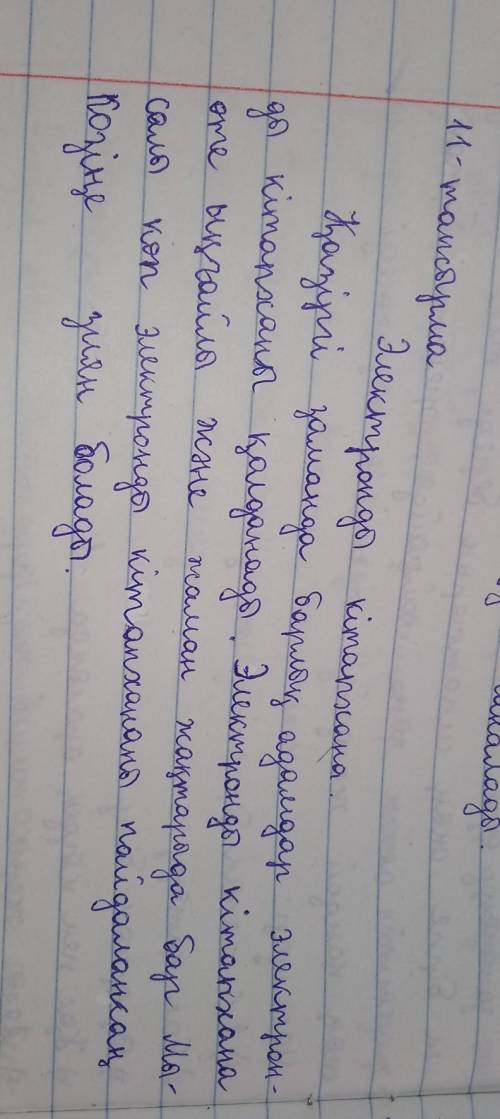 11-тапсырма
Электронды кітапхана.
Қазіргі заманда барлық адамдар электрон-
ды кітапханы қалданады. Электронды кітапхана
өте ыңғайлы және жаман жақтарыда бар Мы-
салы көп электронды кітапхананы пайдаланкаң
көзіңе зиян болады.